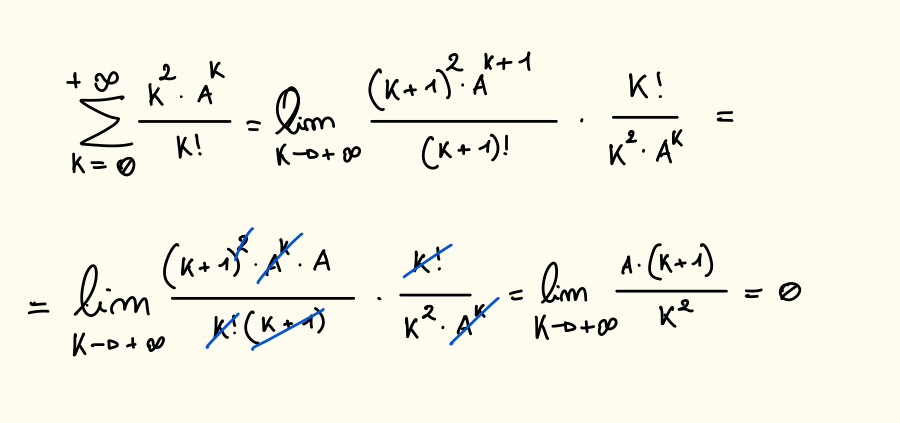 \sum_{K=0}^{+\infty} \frac{K^2 \cdot A^K}{K!} = \lim_{K \to +\infty} \frac{(K+1)^2 \cdot A^{K+1}}{(K+1)!} \cdot \frac{K!}{K^2 \cdot A^K} =
= \lim_{K \to +\infty} \frac{(K+1)^2 \cdot A^K \cdot A}{K!(K+1)} \cdot \frac{K!}{K^2 \cdot A^K} = \lim_{K \to +\infty} \frac{A \cdot (K+1)}{K^2} = 0